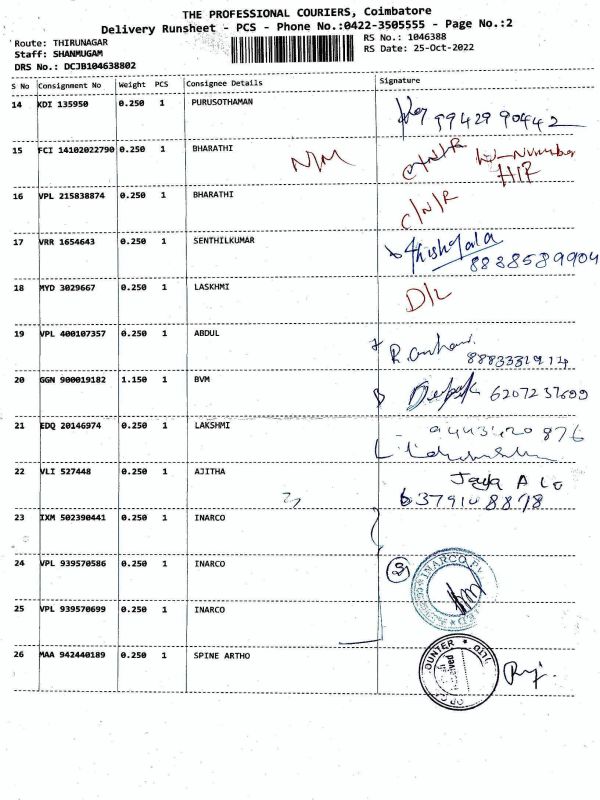 THE PROFESSIONAL COURIERS, Coimbatore
Delivery Runsheet - PCS - Phone No.:0422-3505555 - Page No.:2
Route: THIRUNAGAR
RS No.: 1046388
Staff: SHANMUGAM
RS Date: 25-Oct-2022
DRS No.: DCJB104638802
S No Consignment No Weight PCS Consignee Details Signature
14 KDI 135950 0.250 1 PURUSOTHAMAN 9942990442
15 FCI 14102022790 0.250 1 BHARATHI N/M C/N/R
16 VPL 215838874 0.250 1 BHARATHI C/N/R
17 VRR 1654643 0.250 1 SENTHILKUMAR 8838589904
18 MYD 3029667 0.250 1 LASKHMI D/L
19 VPL 400107357 0.250 1 ABDUL
20 GGN 900019182 1.150 1 BVM Deepak 6207237699
21 EDQ 20146974 0.250 1 LAKSHMI
22 VLI 527448 0.250 1 AJITHA Jaya A
23 IXM 502390441 0.250 1 INARCO
24 VPL 939570586 0.250 1 INARCO INARCO
25 VPL 939570699 0.250 1 INARCO
26 MAA 942440189 0.250 1 SPINE ARTHO